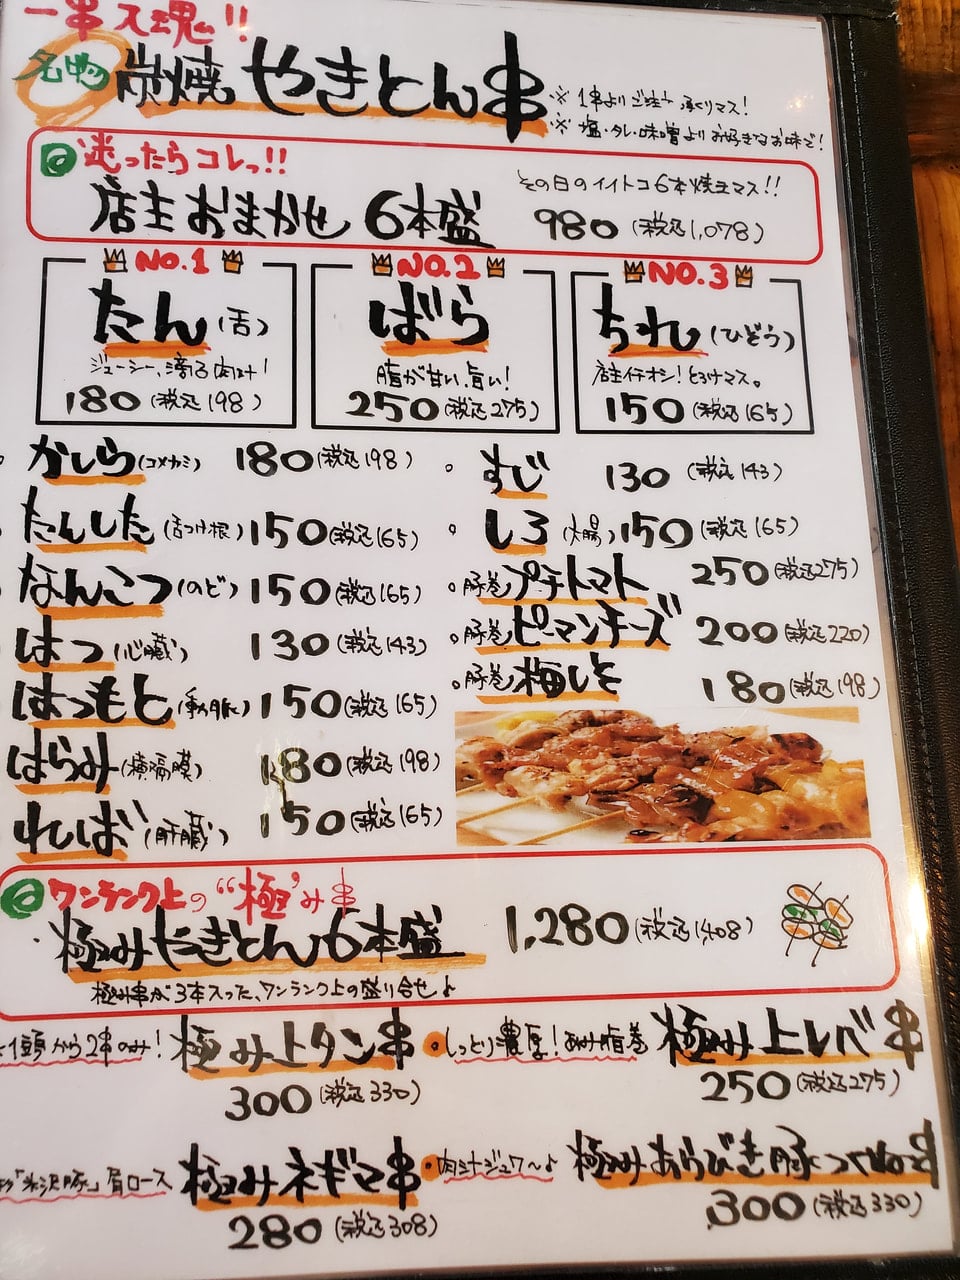 一串入魂!!
名物 炭焼 やきとん串
※1串よりご注文承りマス!
※塩・タレ・味噌よりお好きなお味で!
迷ったらコレっ!!
店主おまかせ 6本盛
その日のイイトコ6本焼きマス!!
980(税込1,078)
NO.1
たん(舌)
ジューシー、滴る肉汁!
180(税込198)
NO.2
ばら
脂が甘い、旨い!
250(税込275)
NO.3
ちれ(ひぞう)
店主イチオシ!とろけマス。
150(税込165)
かしら(コメカミ) 180(税込198)
たんした(舌つけ根) 150(税込165)
なんこつ(のど) 150(税込165)
はつ(心臓) 130(税込143)
はつもと(動脈) 150(税込165)
はらみ(横隔膜) 180(税込198)
ればー(肝臓) 150(税込165)
すじ 130(税込143)
しろ(大腸) 150(税込165)
豚巻プチトマト 250(税込275)
豚巻ピーマンチーズ 200(税込220)
豚巻梅しそ 180(税込198)
ワンランク上の“極”み串
極みやきとん6本盛 1,280(税込1,408)
極み串が3本入った、ワンランク上の盛り合せ♪
1頭から2串のみ! 極み上タン串
300(税込330)
しっとり濃厚!あみ脂巻 極み上レバー串
250(税込275)
「米沢豚」肩ロース 極みネギマ串
280(税込308)
肉汁ジュワ〜♪ 極みあらびき豚つくね串
300(税込330)